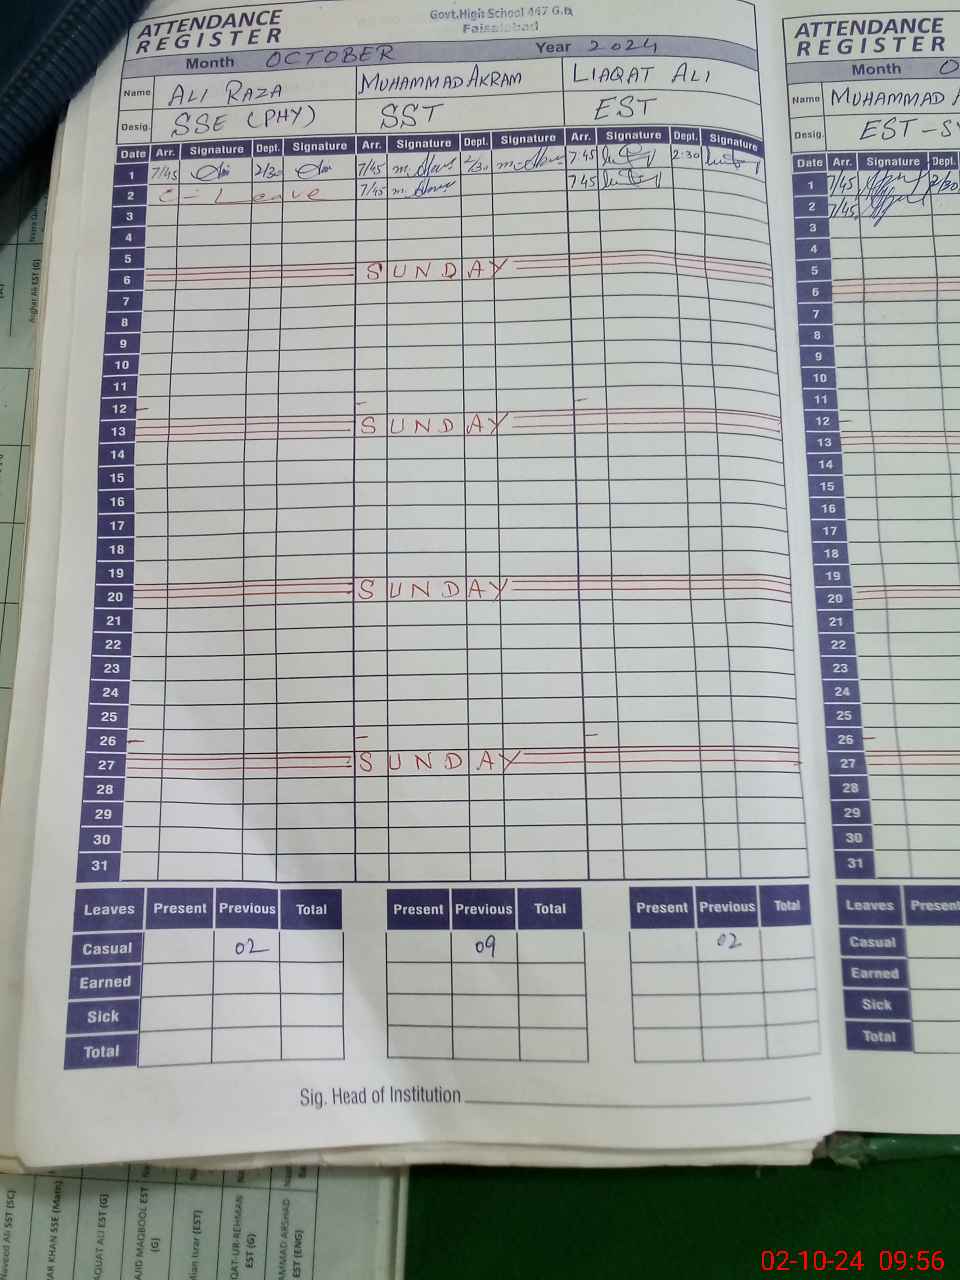 Govt.High School 447 G.B
Faisalabad
ATTENDANCE
REGISTER
Month OCTOBER Year 2024
Name ALI RAZA MUHAMMAD AKRAM LIAQAT ALI
Desig. SSE (PHY) SST EST
Date Arr. Signature Dept. Signature Arr. Signature Dept. Signature Arr. Signature Dept. Signature
1 7/45 2/30 7/45 2/30 7 45 2:30
2 C - Leave 7/45 7 45
3
4
5
6 SUNDAY
7
8
9
10
11
12
13 SUNDAY
14
15
16
17
18
19
20 SUNDAY
21
22
23
24
25
26
27 SUNDAY
28
29
30
31
Leaves Present Previous Total Present Previous Total Present Previous Total
Casual 02 09 02
Earned
Sick
Total
Sig. Head of Institution
ATTENDANCE
REGISTER
Month O
Name MUHAMMAD A
Desig. EST-S
Date Arr. Signature Dept.
1 7/45 2/30
2 7/45
3
4
5
6
7
8
9
10
11
12
13
14
15
16
17
18
19
20
21
22
23
24
25
26
27
28
29
30
31
Leaves Present
Casual
Earned
Sick
Total
Asghar Ali EST (G)
Naveed Ali SST (SC)
AR KHAN SSE (Math)
AQUAT ALI EST (G)
AJID MAQBOOL EST
(G)
Mian Israr (EST)
QAT-UR-REHMAN
EST (G)
AMMAD ARSHAD
EST (ENG)
02-10-24 09:56